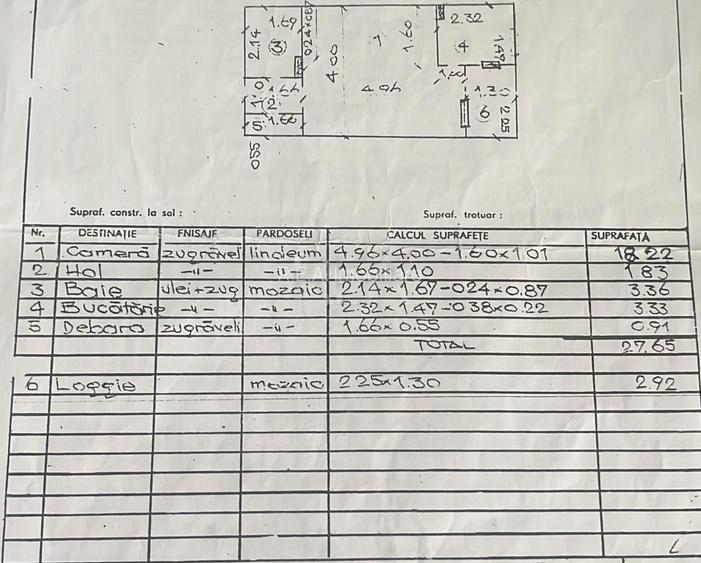 1.69
2.14
3
024×087
4.00
1
1.60
2.32
4
1.47
1.66
2
4.96
6
2.25
5
1.66
055
Supraf. constr. la sol :
Supraf. trotuar :
Nr. DESTINAȚIE FNISAJE PARDOSELI CALCUL SUPRAFEȚE SUPRAFAȚA
1 Cameră zugrăvel linoleum 4.96×4.00-1.60×1.01 18.22
2 Hal -"- -"- 1.66×1.10 1.83
3 Baie ulei+zug mozaic 2.14×1.67-024×0.87 3.36
4 Bucătărie -"- -"- 2.32×1.47-038×0.22 3.33
5 Debara zugrăveli -"- 1.66×0.55 0.91
TOTAL 27.65
6 Loggie mozaic 225×1.30 2.92